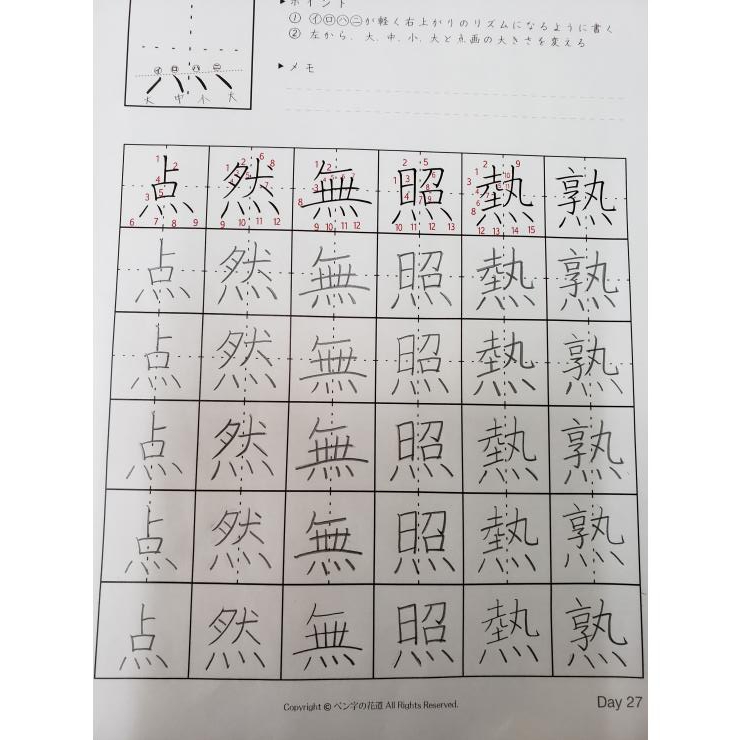 ▶ポイント
① ㋑㋺㋩㋥が軽く右上がりのリズムになるように書く
② 左から、大、中、小、大と点画の大きさを変える
▶メモ
㋑ ㋺ ㋩ ㋥
大 中 小 大
点 然 無 照 熱 熟
点 然 無 照 熱 熟
点 然 無 照 熱 熟
点 然 無 照 熱 熟
点 然 無 照 熱 熟
点 然 無 照 熱 熟
Copyright © ペン字の花道 All Rights Reserved.
Day 27